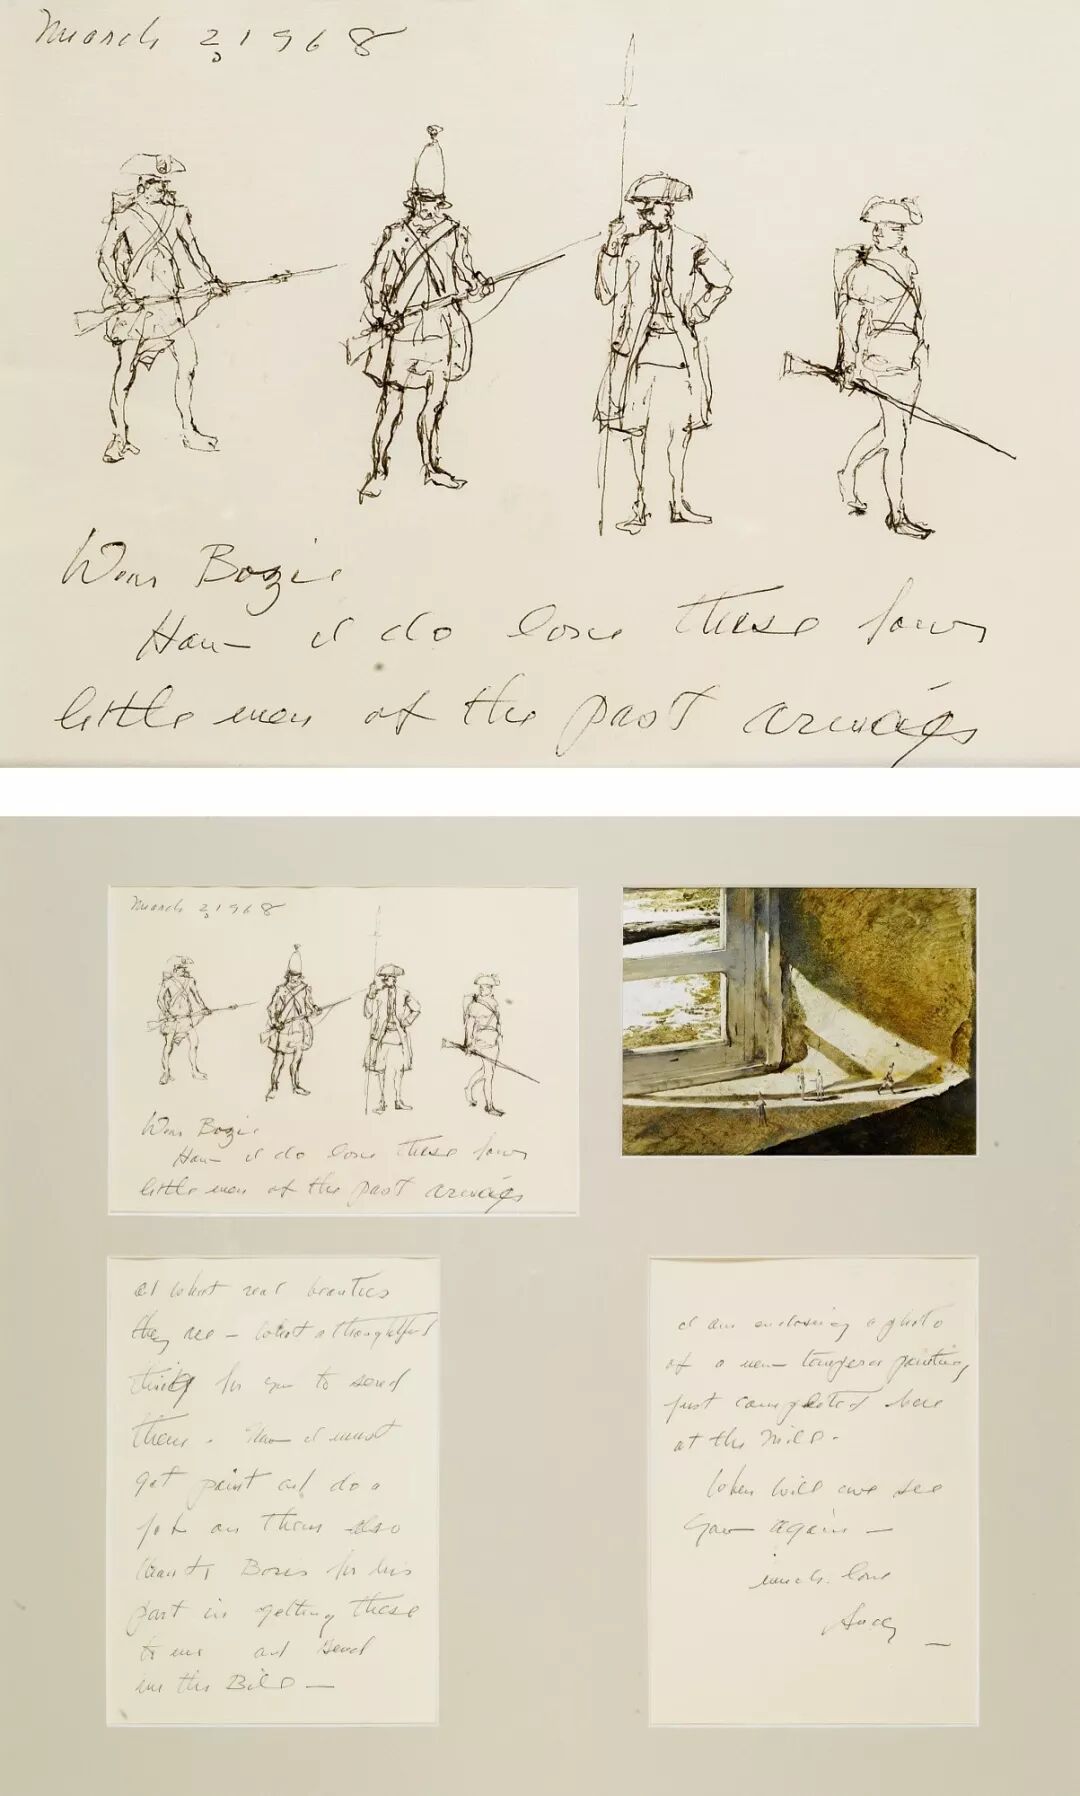 March 2, 1968
Dear Bozie
How I do love these four
little men of the past armies
March 2, 1968
Dear Bozie
How I do love these four
little men of the past armies
and what real beauties
they are – What a thoughtful
thing for you to send
them. Now I must
get paint and do a
job on them also
thank Boris for his
part in getting these
to me and send
me the Bill —
I am enclosing a photo
of a new tempera painting
just completed here
at the Mill.
When will we see
you again —
much love
Andy —